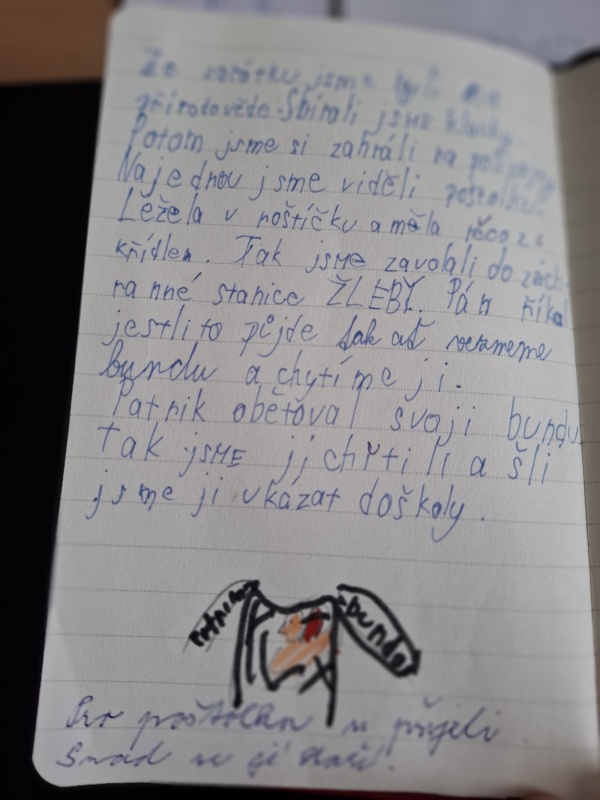 Ze začátku jsme byli na
přírodovědě. Sbírali jsme klacky.
Potom jsme si zahráli na
Najednou jsme viděli poštolku.
Ležela v roštíčku a měla něco z s
křídlem. Tak jsme zavolali do zách-
ranné stanice ŽLEBY. Pán říkal
jestli to půjde tak ať vezmeme
bundu a chytíme ji.
Patrik obětoval svoji bundu
tak jsme jí chytili a šli
jsme ji ukázat do školy.
bunda
Pro poštolku si přijeli
Snad se jí daří.